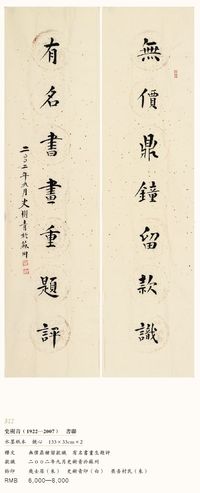 無價鼎鐘留款識
有名書畫重題評
二〇〇二年九月史樹青於蘇州
312
史樹青（1922—2007） 書聯
水墨紙本 鏡心 133×33cm×2
釋文 無價鼎鐘留款識 有名書畫重題評
款識 二〇〇二年九月史樹青於蘇州
RMB 6,000—8,000